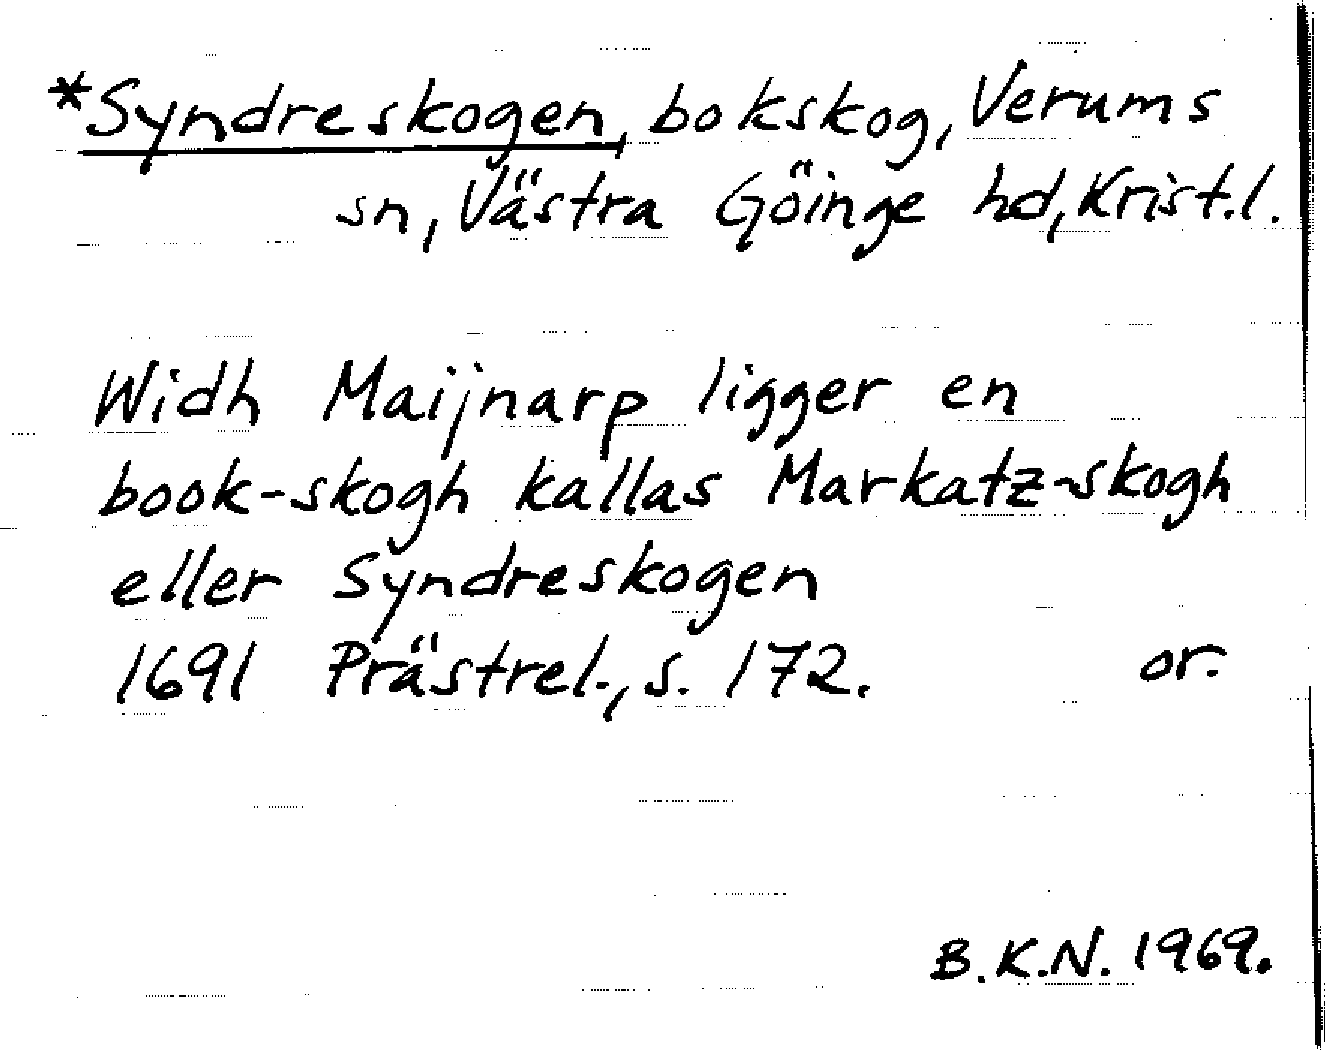 *Syndreskogen, bokskog, Verums
sn, Västra Göinge hd, Krist.l.
Widh Maijnarp ligger en
book-skogh kallas Markatz-skogh
eller Syndreskogen
1691 Prästrel., s. 172. or.
B.K.N. 1969.